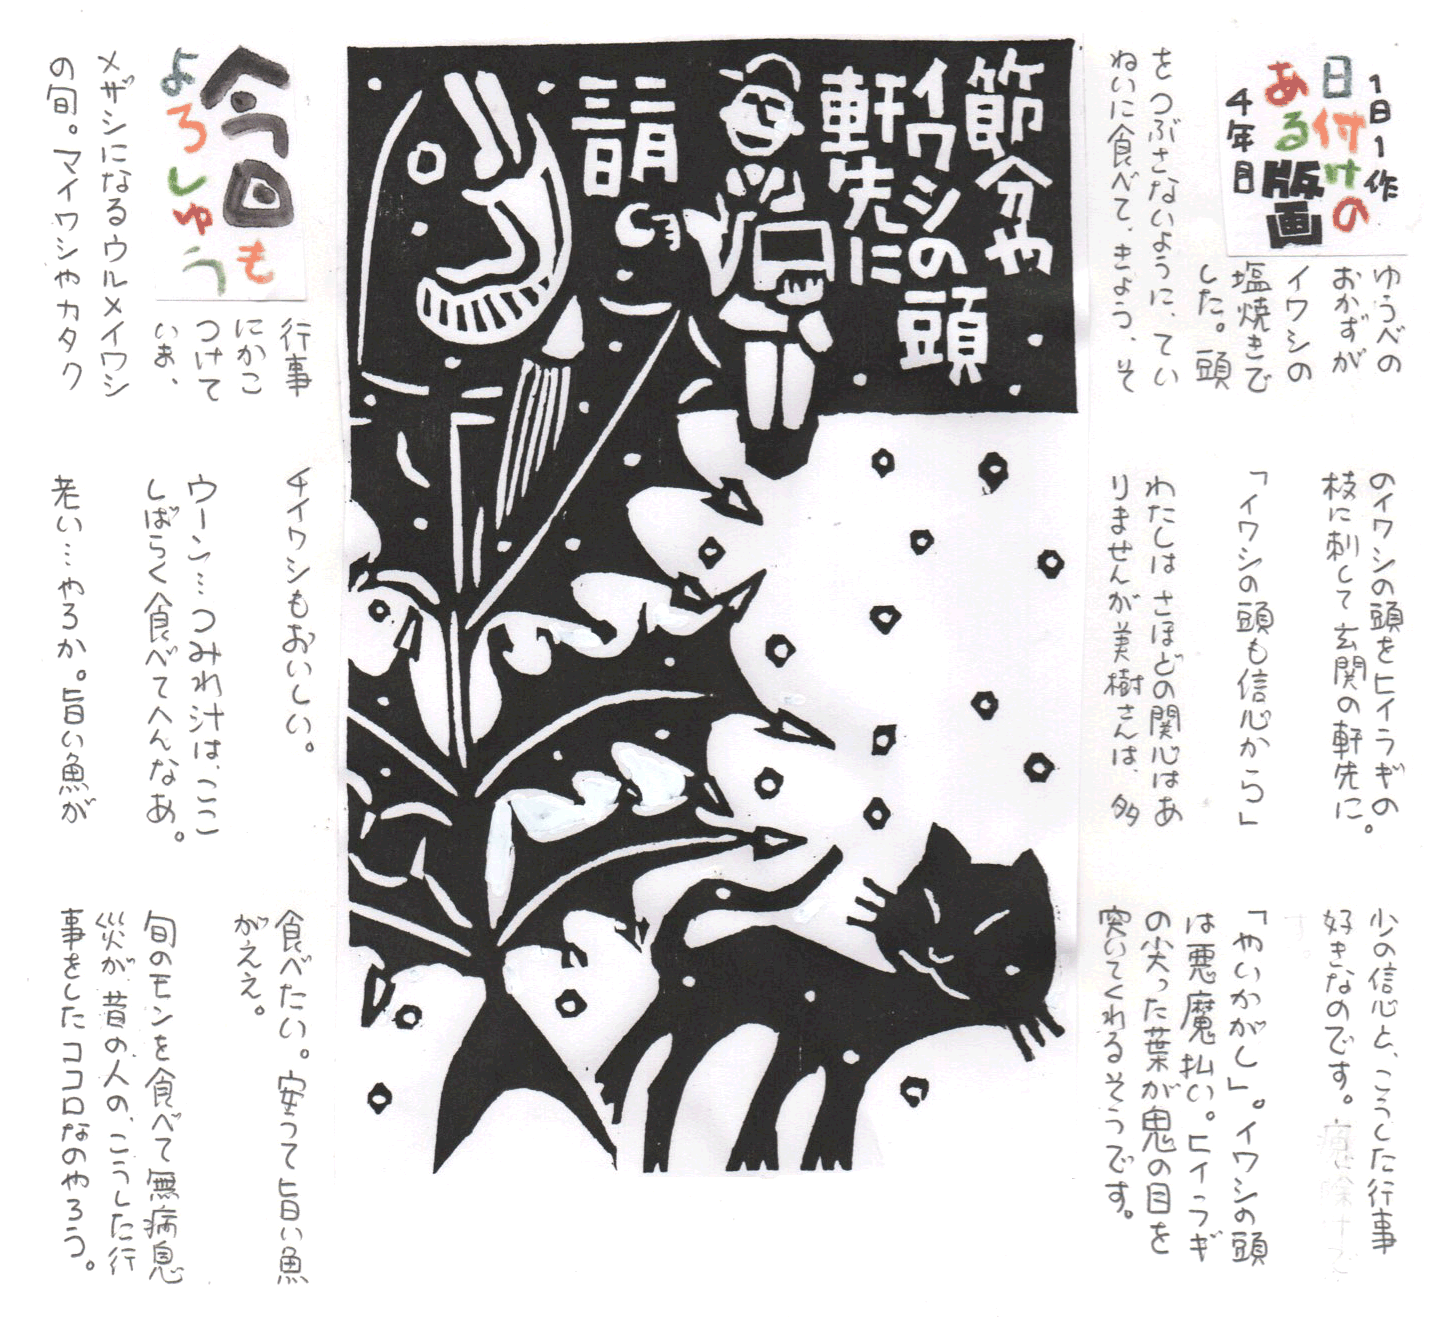 1日1作
日付けの
ある版画
4年目
ゆうべの
おかずが
イワシの
塩焼きで
した。頭
をつぶさないように、てい
ねいに食べて、きょう、そ
のイワシの頭をヒイラギの
枝に刺して玄関の軒先に。
「イワシの頭も信心から」
わたしは さほどの関心はあ
りませんが美樹さんは、多
少の信心と、こうした行事
好きなのです。
「やいかがし」。イワシの頭
は悪魔払い。ヒイラギ
の尖った葉が鬼の目を
突いてくれるそうです。
節分や
イワシの頭
軒先に
二月
三日
今日も
よろしゅう
行事
にかこ
つけて
いま、
メザシになるウルメイワシ
の旬。マイワシやカタク
チイワシもおいしい。
ウーン…つみれ汁は、ここ
しばらく食べてへんなあ。
老い…やろか。旨い魚が
食べたい。安うて旨い魚
がええ。
旬のモンを食べて無病息
災が、昔の人の、こうした行
事をしたココロなのやろう。